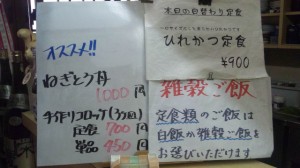 オススメ!!
ねぎとう丼
1000円
手作りコロッケ(3ヶ)
定食 700円
単品 450円
本日の日替わり定食
ひれかつ定食
¥900
雑穀ご飯
定食類のご飯は
白飯か雑穀ご飯を
お選びいただけます